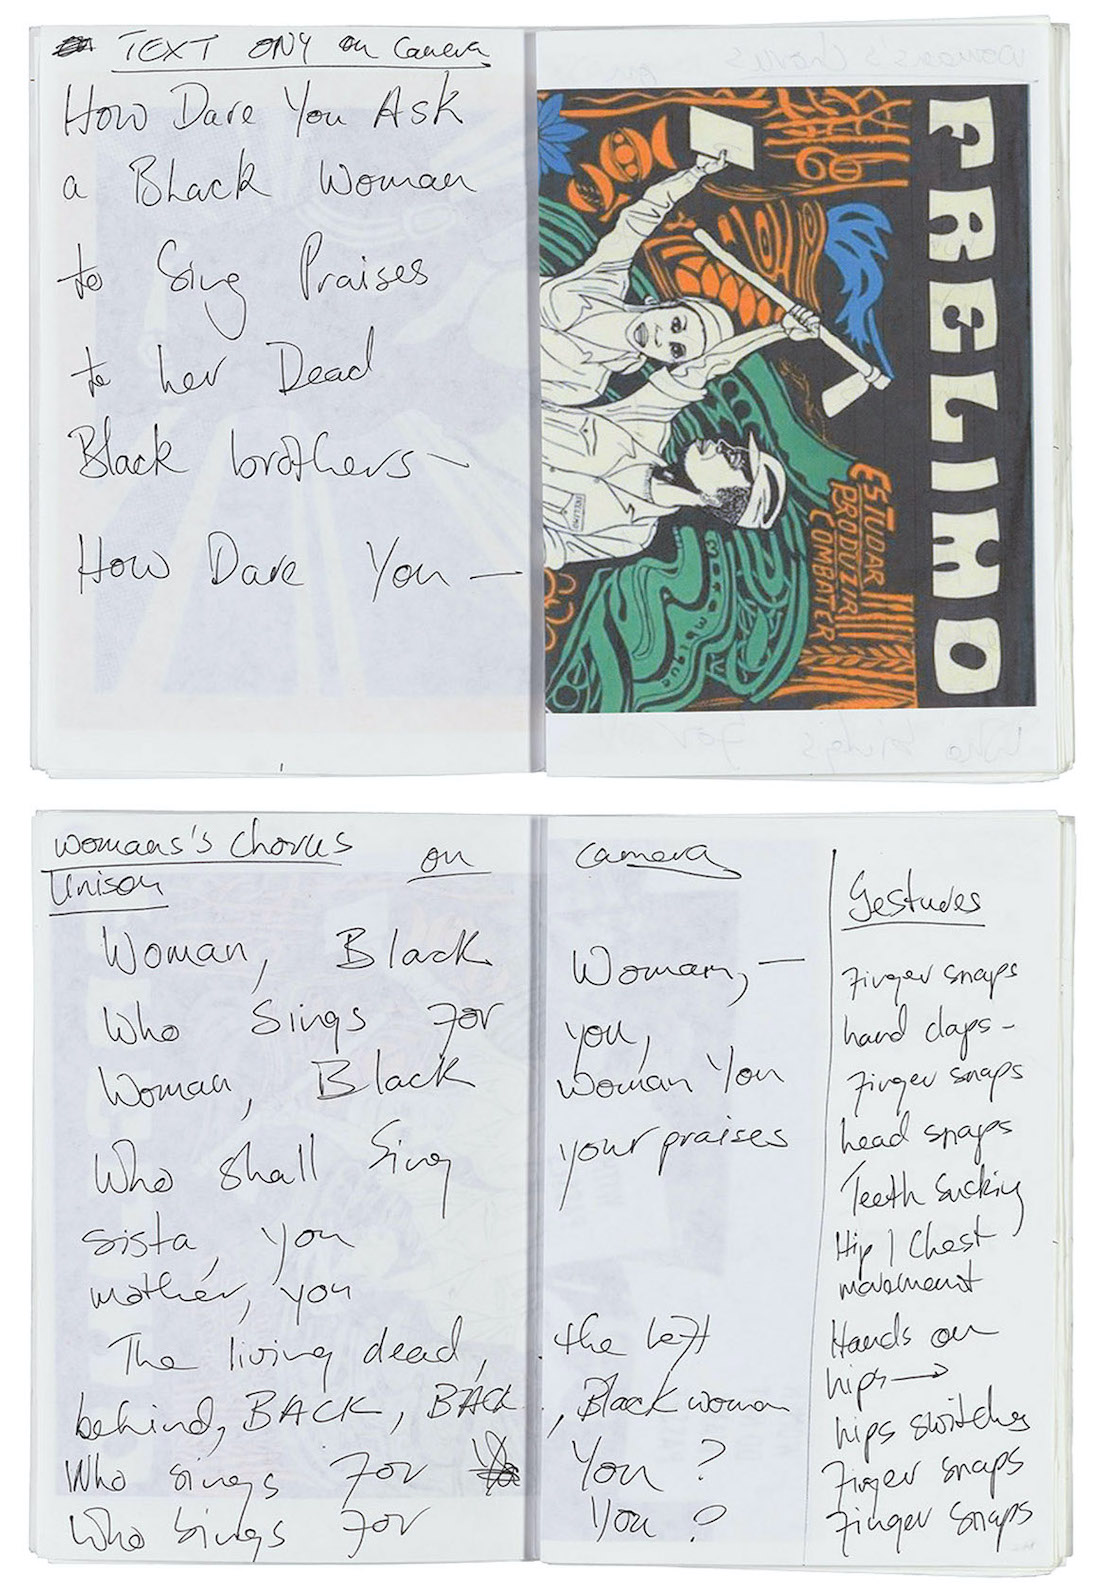 TEXT ONY on Camera
How Dare You Ask
a Black Woman
to Sing Praises
to her Dead
Black brothers—
How Dare You —
FRELIMO
ESTUDAR
PRODUZIR
COMBATER
FRELIMO
Womans's Chorus on camera
Unison
Woman, Black Woman, —
Who Sings For you,
Woman, Black Woman You
Who shall Sing your praises
sista, you
mother, you
The living dead, the left
behind, BACK, BACK, Black woman
Who sings For You ?
Who Sings For You ?
Gestures
Finger snaps
hand claps -
Finger snaps
head snaps
Teeth Sucking
Hip / Chest
movement
Hands on
hips →
hips switches
Finger snaps
Finger snaps